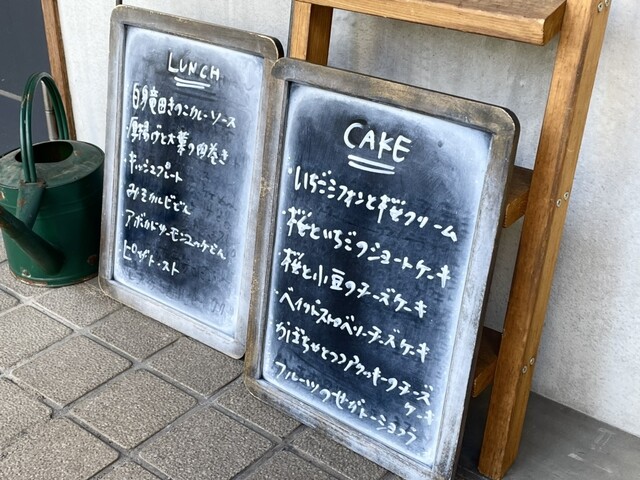 LUNCH
白身竜田きのこカレーソース
・厚揚げと大葉の肉巻き
・キッシュプレート
・アボカドサーモンユッケどん
・ピザトースト
CAKE
・いちごシフォンと桜クリーム
・桜といちごのショートケーキ
・桜と小豆のチーズケーキ
・ベイクドストロベリーチーズケーキ
・かぼちゃとココアクッキーのチーズ
ケーキ
・フルーツのせガトーショコラ